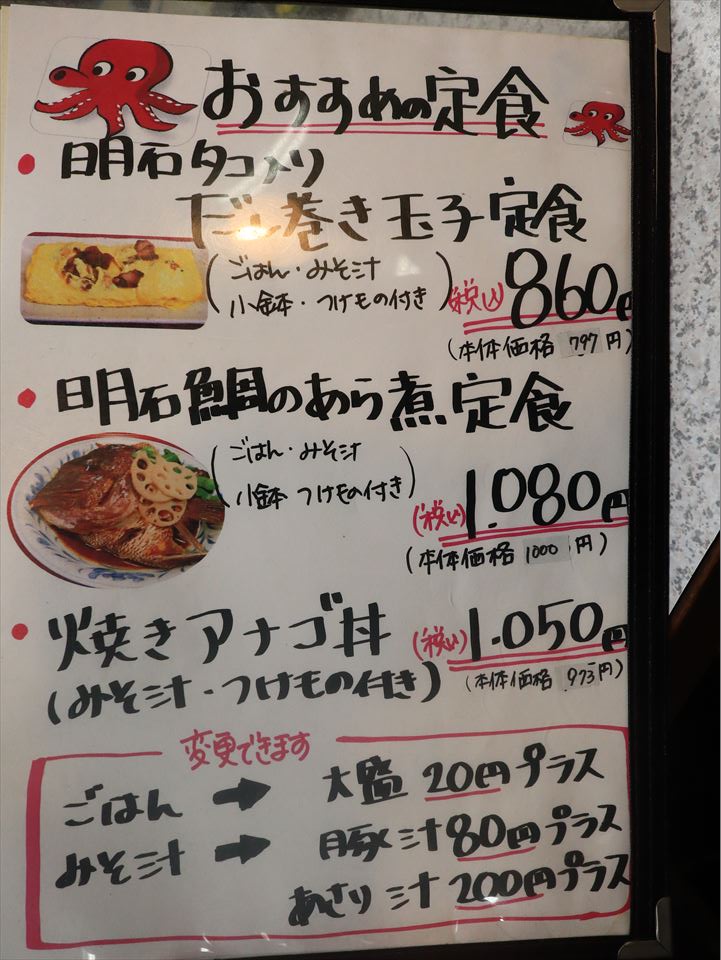 おすすめの定食
・明石タコ入り
だし巻き玉子定食
(ごはん・みそ汁
小鉢・つけもの付き)
(税込)860円
(本体価格 797円)
・明石鯛のあら煮定食
(ごはん・みそ汁
小鉢 つけもの付き)
(税込)1.080円
(本体価格 1000円)
・焼きアナゴ丼
(税込)1.050円
(みそ汁・つけもの付き)
(本体価格 973円)
変更できます
ごはん → 大盛 20円プラス
みそ汁 → 豚汁 80円プラス
あさり汁 200円プラス